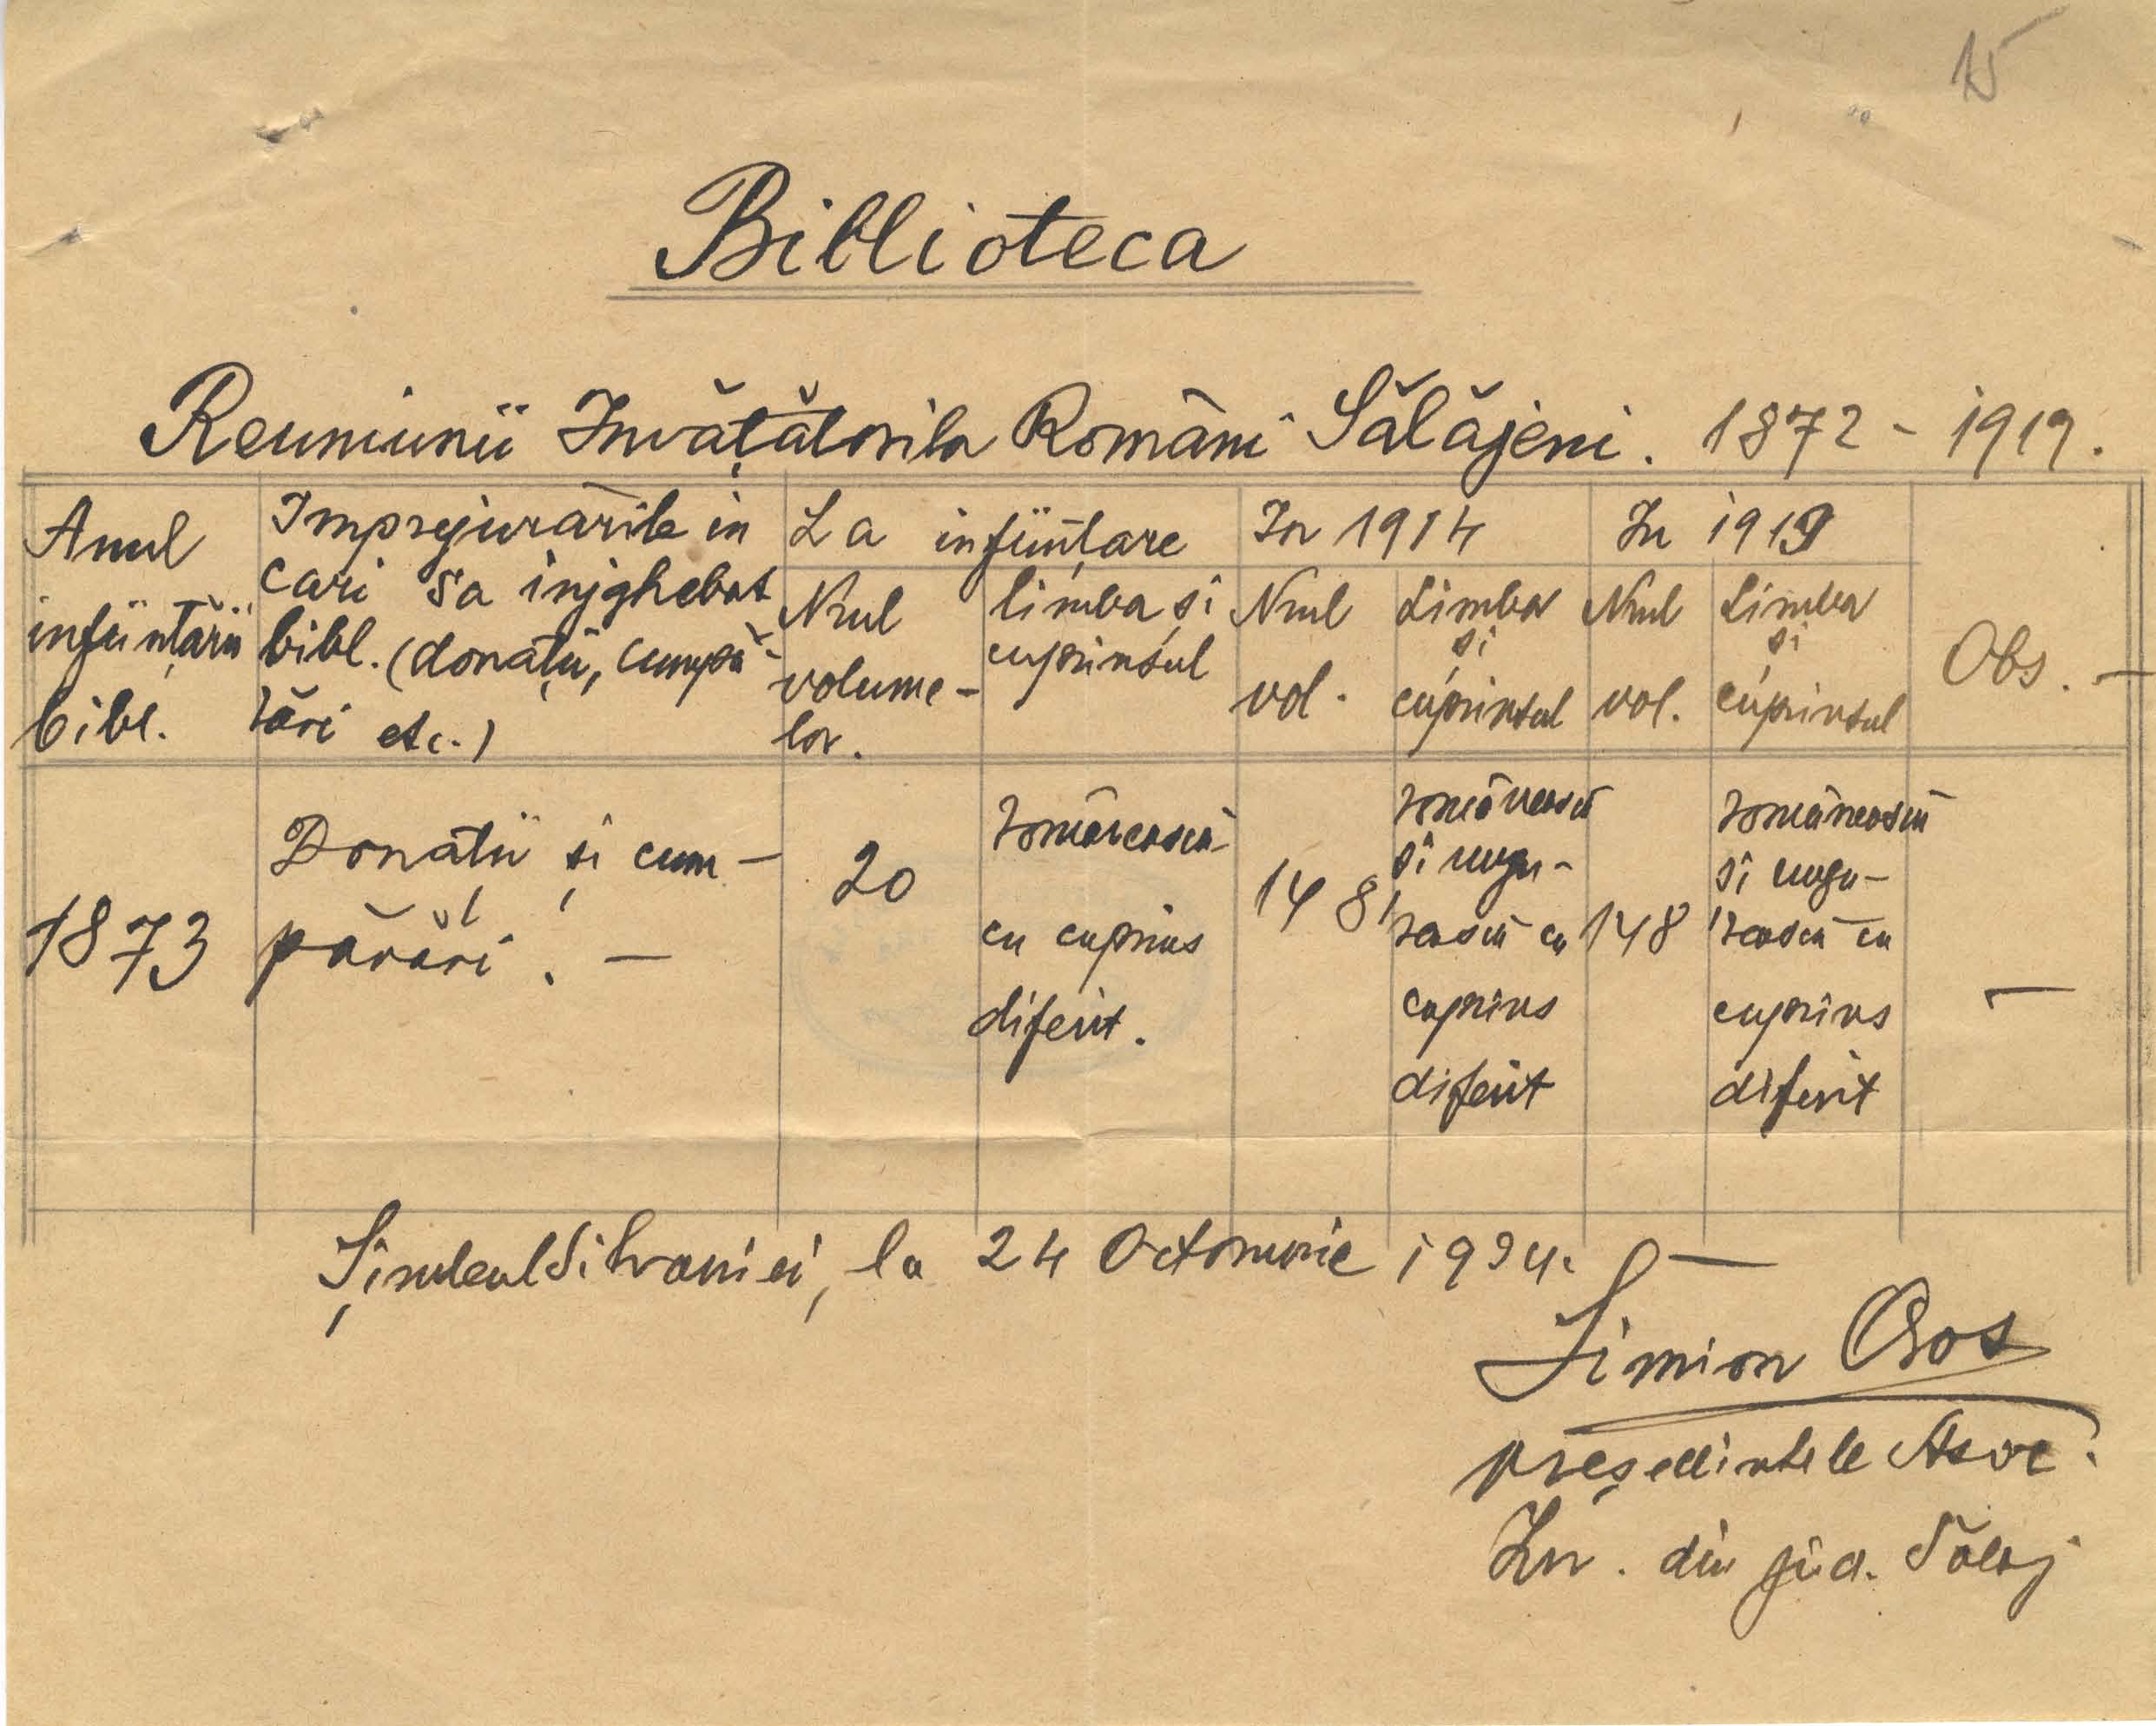 15
Biblioteca
Reuniunii Invățătorilor Români Sălăjeni. 1872 - 1919.
Anul
înființării
bibl.
Imprejurările in
cari s'a injghebat
bibl. (donații, cumpă-
rări etc.)
La inființare
Nrul
volume-
lor.
limba și
cuprinsul
In 1914
Nrul
vol.
Limba
și
cuprinsul
In 1919
Nrul
vol.
Limba
și
cuprinsul
Obs. —
1873
Donații și cum-
părări. —
20
românească
cu cuprins
diferit.
148
românească
și ungu-
rească cu
cuprins
diferit
148
românească
și ungu-
rească cu
cuprins
diferit
—
Șimleul Silvaniei, la 24 Octomvrie 1934. —
Simion Oros
președintele Asoc.
Inv. din jud. Sălaj